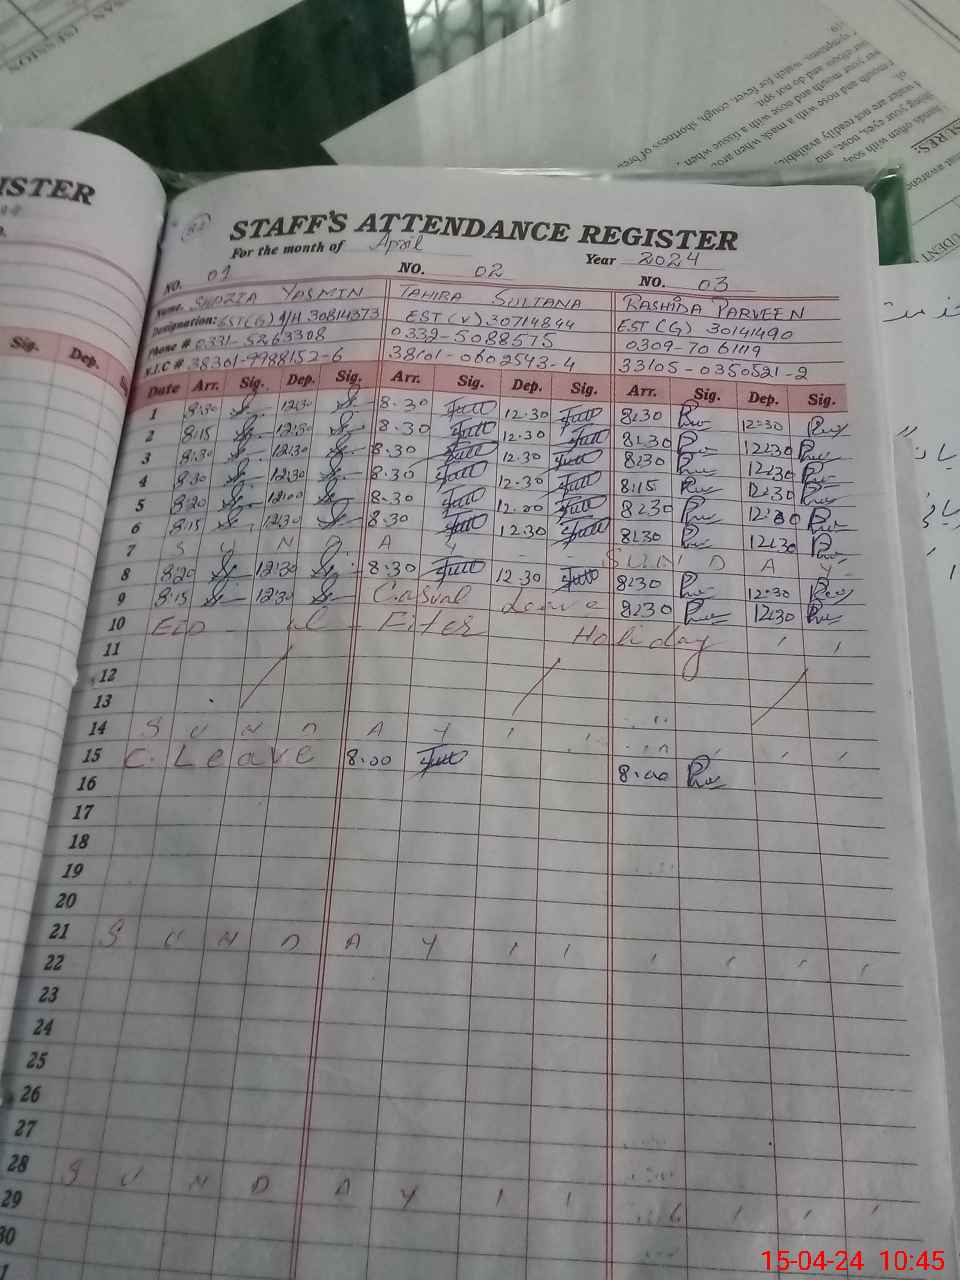 SESSION
hands often with soap
water are not readily available
ing your eyes, nose, and
mouth and nose with a mask when
mouth and nose with a tissue when
tbows and do not spit
symptoms, watch for fever, cough, shortness of
SURES:
UDENT
ISTER
Sig. Dep.
STAFF'S ATTENDANCE REGISTER
For the month of April Year 2024
NO. 01 NO. 02 NO. 03
Name. SHAZIA YASMIN TAHIRA SULTANA RASHIDA PARVEEN
Designation: EST(G) 30814373 EST (V) 30714894 EST (G) 30141490
Phone # 0331-5263308 0332-5088575 0309-7061119
N.I.C # 38301-9988152-6 38101-0602543-4 33105-0350521-2
Date Arr. Sig. Dep. Sig. Arr. Sig. Dep. Sig. Arr. Sig. Dep. Sig.
1 8:30 12:30 8.30 12.30 8:30 12:30
2 8:15 12:30 8.30 12.30 8:30 12:30
3 8:30 12:30 8.30 12.30 8:30 12:30
4 8:30 12:30 8.30 12.30 8:15 12:30
5 8:20 12:00 8.30 12.00 8:30 12:00
6 8:15 12:30 8.30 12.30 8:30 12:30
7 S U N D A Y S U N D A Y
8 8:20 12:30 8:30 12.30 8:30 12:30
9 8:15 12:30 Casual Leave 8:30 12:30
10 EID - ul - Fiter Holiday
11
12
13
14 S U N D A Y
15 C. Leave 8.00 8.00
16
17
18
19
20
21 S U N D A Y
22
23
24
25
26
27
28 S U N D A Y
29
30
15-04-24 10:45